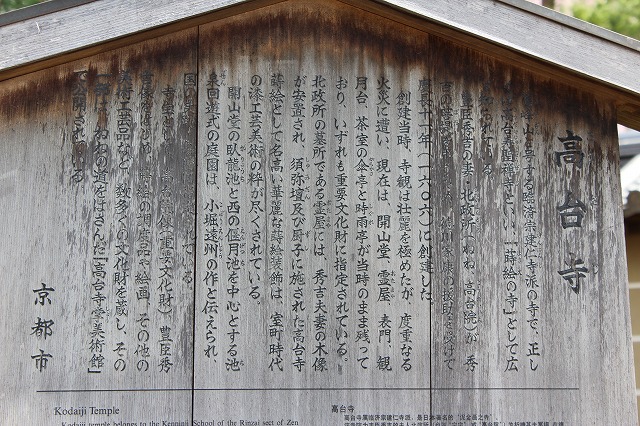 高台寺
号する臨済宗建仁寺派の寺で、正し
禅寺といい、「蒔絵の寺」として広
知られている。
豊臣秀吉の妻・北政所(ねね、高台院)が、秀
の援助を受けて
慶長十一年(一六〇六)に創建した。
創建当時、寺観は壮麗を極めたが、度重なる
火災に遭い、現在は、開山堂、霊屋、表門、観
月台、茶室の傘亭と時雨亭が当時のまま残って
おり、いずれも重要文化財に指定されている。
北政所の墓所である霊屋には、秀吉夫妻の木像
が安置され、須弥壇及び厨子に施された高台寺
蒔絵として名高い華麗な蒔絵装飾は、室町時代
の漆工芸美術の粋が尽くされている。
開山堂の臥龍池と西の偃月池を中心とする池
泉回遊式の庭園は、小堀遠州の作と伝えられ、
国の されている。
(重要文化財)、豊臣秀
吉像をはじめ、蒔絵の調度品や絵画、その他の
美術工芸品など、数多くの文化財を蔵し、その
一部は、ねねの道をはさんだ「高台寺掌美術館」
で公開されている。
京都市
Kodaiji Temple
Kodaiji temple belongs to the Kenninji School of the Rinzai sect of Zen
高台寺
高台寺属临济宗建仁寺派，是日本著名的"泥金画之寺"